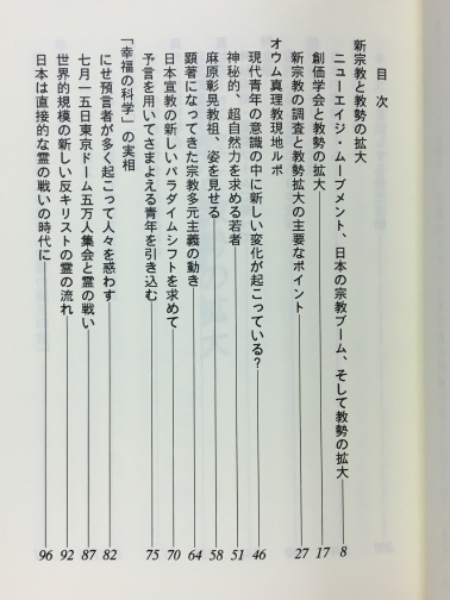 目次
新宗教と教勢の拡大
ニューエイジ・ムーブメント、日本の宗教ブーム、そして教勢の拡大 8
創価学会と教勢の拡大 17
新宗教の調査と教勢拡大の主要なポイント 27
オウム真理教現地ルポ
現代青年の意識の中に新しい変化が起こっている? 46
神秘的、超自然力を求める若者 51
麻原彰晃教祖、姿を見せる 58
顕著になってきた宗教多元主義の動き 64
日本宣教の新しいパラダイムシフトを求めて 70
予言を用いてさまよえる青年を引き込む 75
「幸福の科学」の実相
にせ預言者が多く起こって人々を惑わす 82
七月一五日東京ドーム五万人集会と霊の戦い 87
世界的規模の新しい反キリストの霊の流れ 92
日本は直接的な霊の戦いの時代に 96